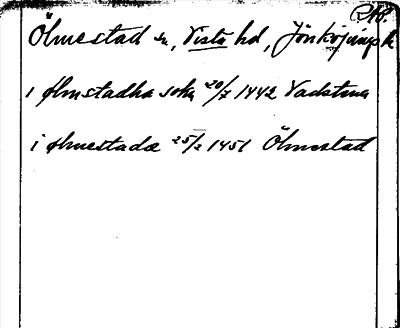 Ölmestad sn, Vista hd, Jönköpings l.
i Ølmstadha sokn 20/7 1442 Vadstena
i Ølmestada 25/2 1451 Ölmestad